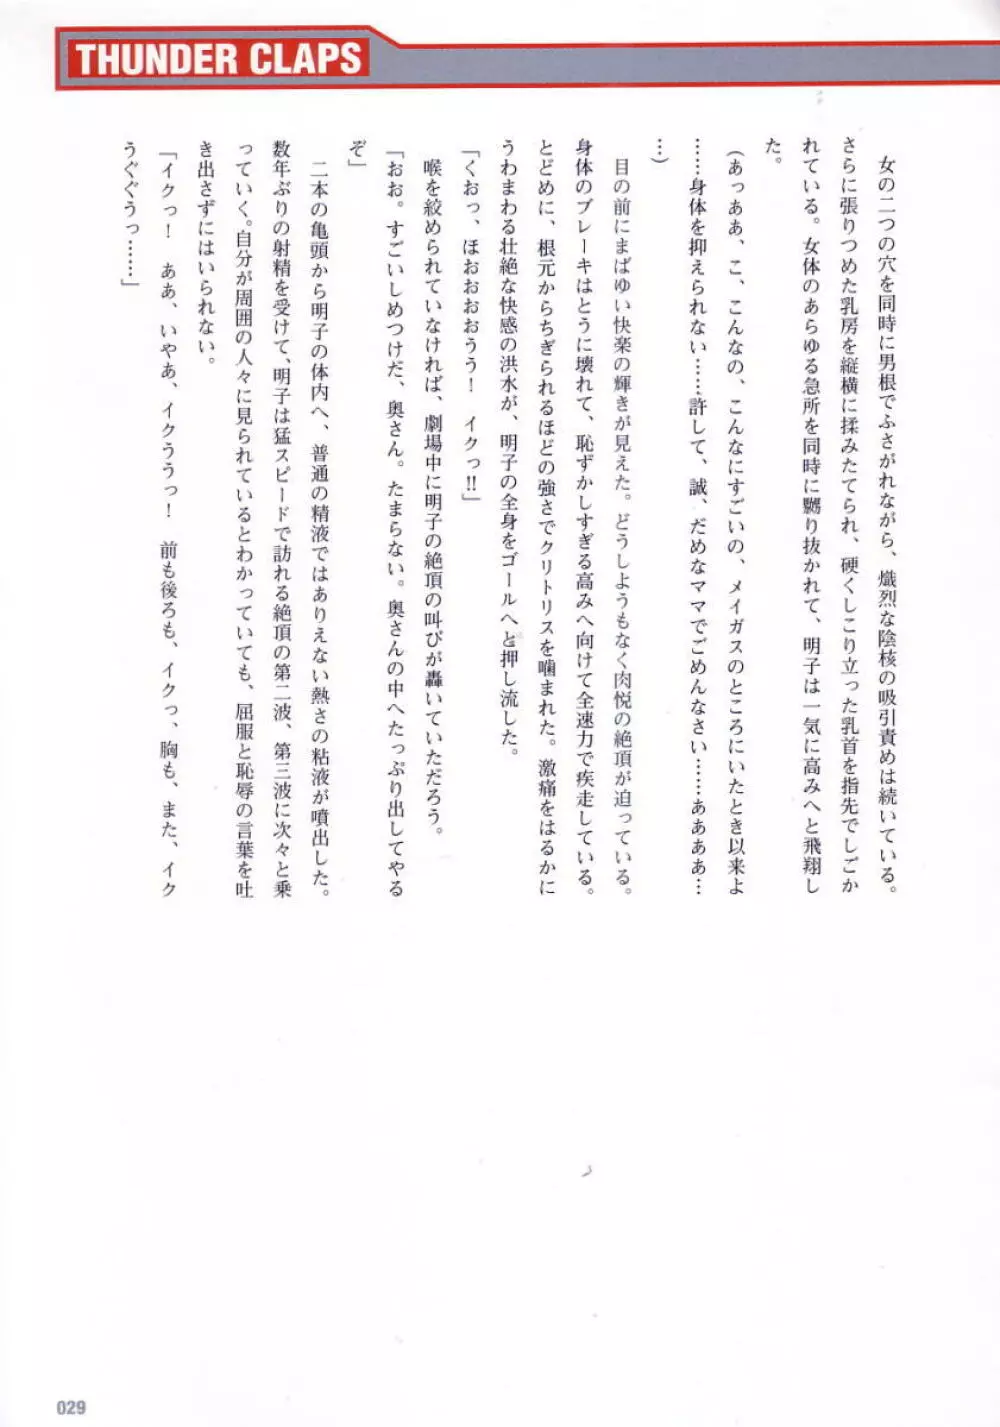 THUNDER CLAPS
女の二つの穴を同時に男根でふさがれながら、熾烈な陰核の吸引責めは続いている。
さらに張りつめた乳房を縦横に揉みたてられ、硬くしこり立った乳首を指先でしごか
れている。女体のあらゆる急所を同時に嬲り抜かれて、明子は一気に高みへと飛翔し
た。
（あっああ、こ、こんなの、こんなにすごいの、メイガスのところにいたとき以来よ
……身体を抑えられない……許して、誠、だめなママでごめんなさい……ああああ…
…）
目の前にまばゆい快楽の輝きが見えた。どうしようもなく肉悦の絶頂が迫っている。
身体のブレーキはとうに壊れて、恥ずかしすぎる高みへ向けて全速力で疾走している。
とどめに、根元からちぎられるほどの強さでクリトリスを噛まれた。激痛をはるかに
うわまわる壮絶な快感の洪水が、明子の全身をゴールへと押し流した。
「くおっ、ほおおおおうう！　イクっ!!」
喉を絞められていなければ、劇場中に明子の絶頂の叫びが轟いていただろう。
「おお。すごいしめつけだ、奥さん。たまらない。奥さんの中へたっぷり出してやる
ぞ」
二本の亀頭から明子の体内へ、普通の精液ではありえない熱さの粘液が噴出した。
数年ぶりの射精を受けて、明子は猛スピードで訪れる絶頂の第二波、第三波に次々と乗
っていく。自分が周囲の人々に見られているとわかっていても、屈服と恥辱の言葉を吐
き出さずにはいられない。
「イクっ！　ああ、いやあ、イクううっ！　前も後ろも、イクっ、胸も、また、イク
うぐぐうっ……」
029